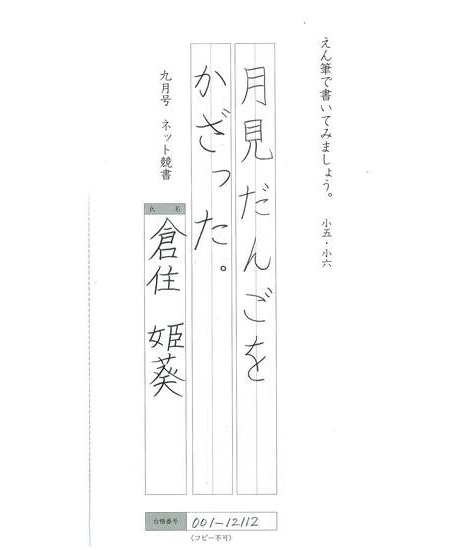 えん筆で書いてみましょう。 小五・小六
月見だんごを
かざった。
九月号 ネット競書
氏名
倉住 姫葵
台帳番号 001-12112
(コピー不可)